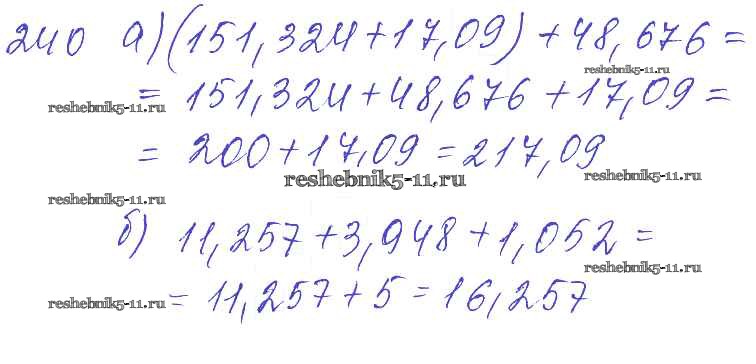 240 а) (151,324+17,09)+48,676=
reshebnik5-11.ru
= 151,324+48,676+17,09=
reshebnik5-11.ru
= 200+17,09=217,09
reshebnik5-11.ru
reshebnik5-11.ru
reshebnik5-11.ru
б) 11,257+3,948+1,052=
reshebnik5-11.ru
= 11,257+5=16,257
reshebnik5-11.ru